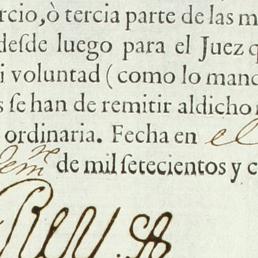 rcio, ò tercia parte de las m
desde luego para el Juez q
i voluntad (como lo manc
s se han de remitir aldicho
ordinaria. Fecha en el
de mil setecientos y c